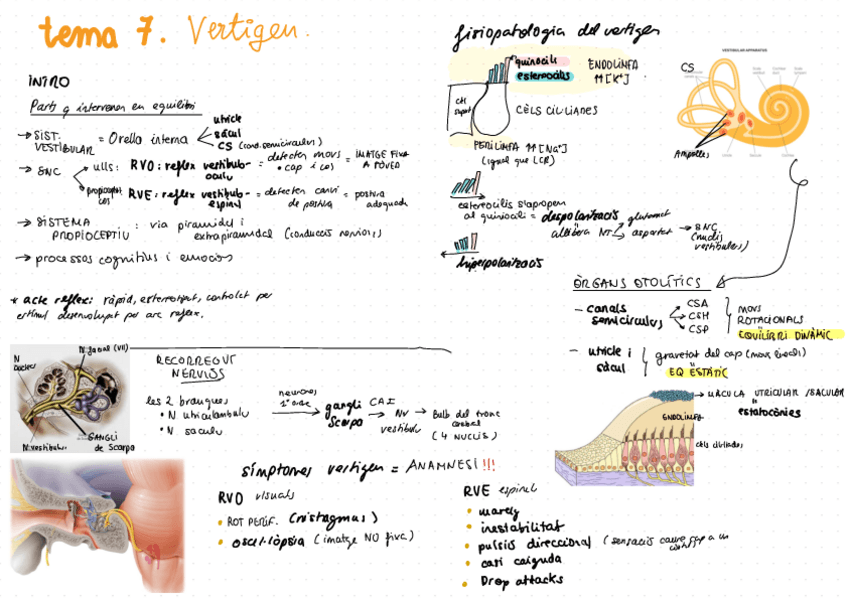 tema 7. Vertigen.
INTRO
Parts q intervenen en equilibri
→ SIST. VESTIBULAR = Orella interna
utricle
sacul
CS (cond. semicirculars)
→ SNC
ulls: RVO: reflex vestibulo-ocular = detecten movs cap i cos = IMATGE FIXA A FOVEA
propiocepció cos RVE: reflex vestibulo-espinal = detecten canvi de postura = postura adequada
→ SISTEMA PROPIOCEPTIU: via piramidal i extrapiramidal (conducció nerviosa)
→ processos cognitius i emocions
* acte reflex: ràpid, estereotipat, controlat per
estímul desenvolupat per arc reflex.
N. facial (VII)
N. vestibular
GANGLI de Scarpa
RECORREGUT
NERVIÓS
les 2 branques
• N. utriculoampullar
• N. sacular
neurones 1r ordre
gangli Scarpa
CAI
→ Nv vestibular
→ Bulb del tronc cerebral
(4 NUCLIS)
símptomes vertigen = ANAMNESI!!!
RVO visuals
• ROT PERIF. (nistagmus)
• oscil·lòpsia (imatge NO fixa)
RVE espinal
• mareig
• inestabilitat
• pulsió direccional (sensació caure cap a un costat)
• quasi caiguda
• Drop attacks
fisiopatologia del vertigen
quinocili
estereocilis
ENDOLINFA
↑↑[K+]
cèl suport
CÈLS CILIADES
PERILINFA ↑↑[Na+]
(igual que LCR)
estereocilis s'apropen
al quinocili = despolarització
allibera NT
glutamat
aspartat
→ SNC
(nuclis vestibulars)
hiperpolarització
VESTIBULAR APPARATUS
CS
Ampolles
ÒRGANS OTOLÍTICS
- canals semicirculars
CSA
CSH
CSP
MOVS
ROTACIONALS
EQUILIBRI DINÀMIC
- utricle i sacul
gravetat del cap (movs lineals)
EQ ESTÀTIC
→ MÀCULA UTRICULAR / SACULAR
=
estatocònies
ENDOLINFA
cèls ciliades